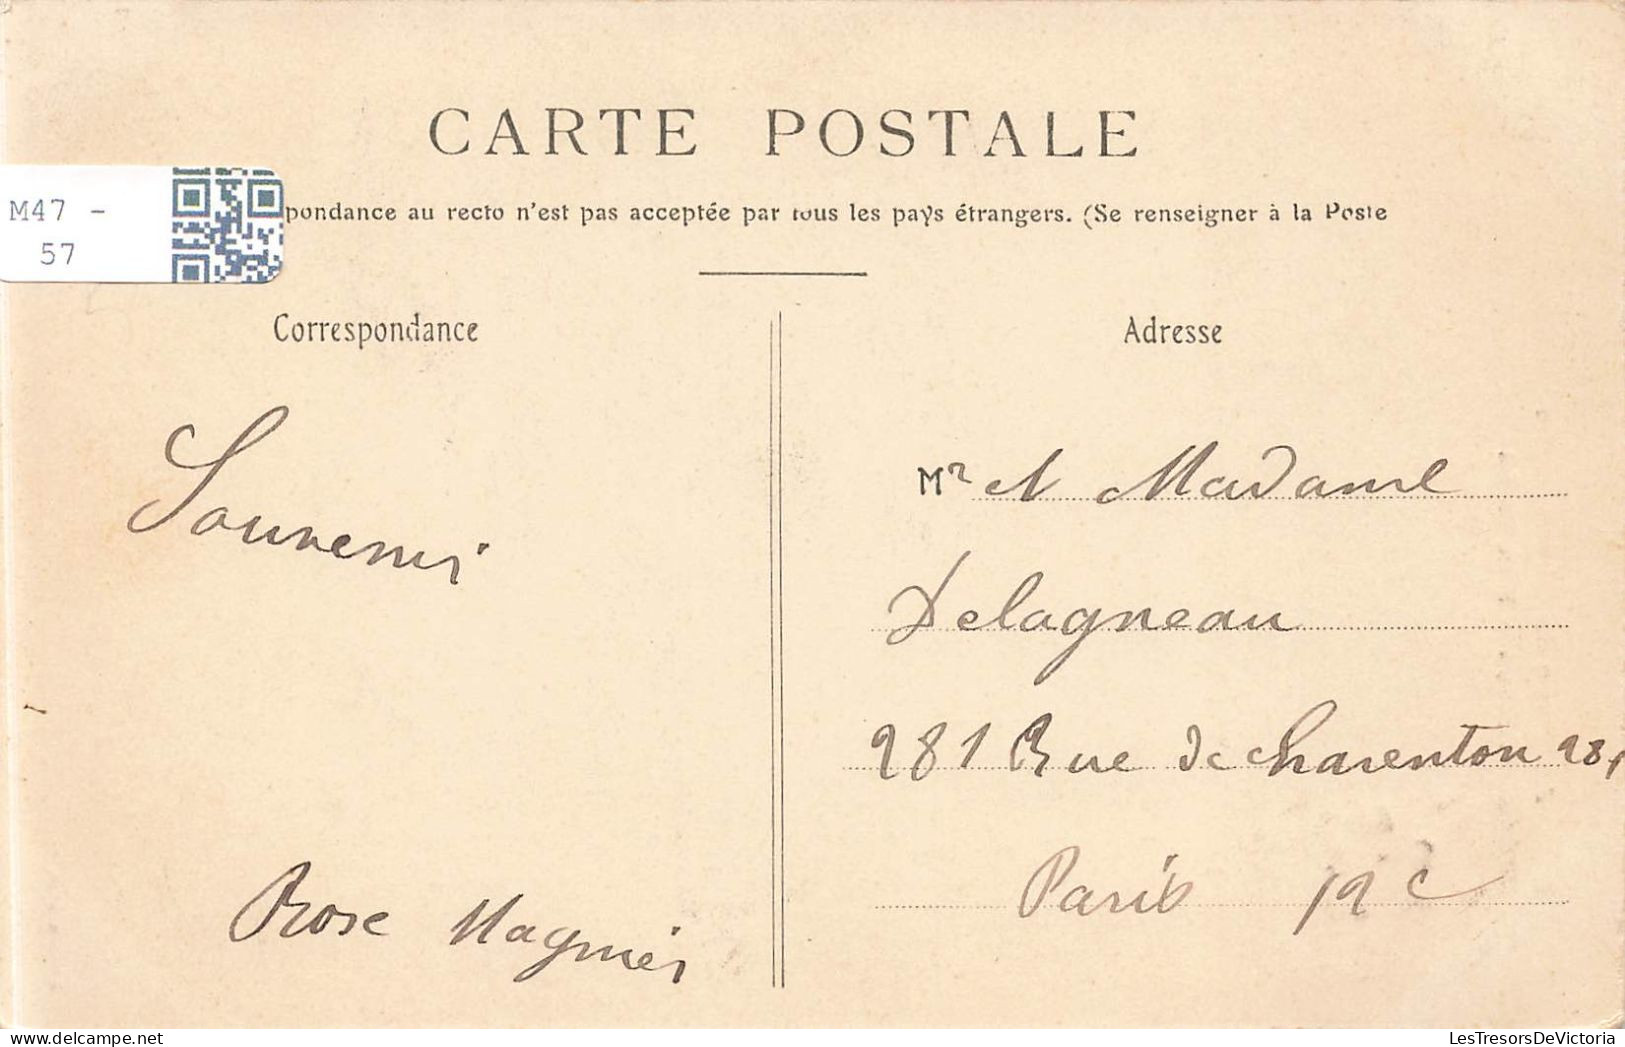 CARTE POSTALE
M47 -
57
pondance au recto n'est pas acceptée par tous les pays étrangers. (Se renseigner à la Poste
Correspondance
Adresse
Souvenir
Rose Magnier
Mr et Madame
Delagneau
281 Rue de Charenton 281
Paris 12e
delcampe.net
LesTresorsDeVictoria